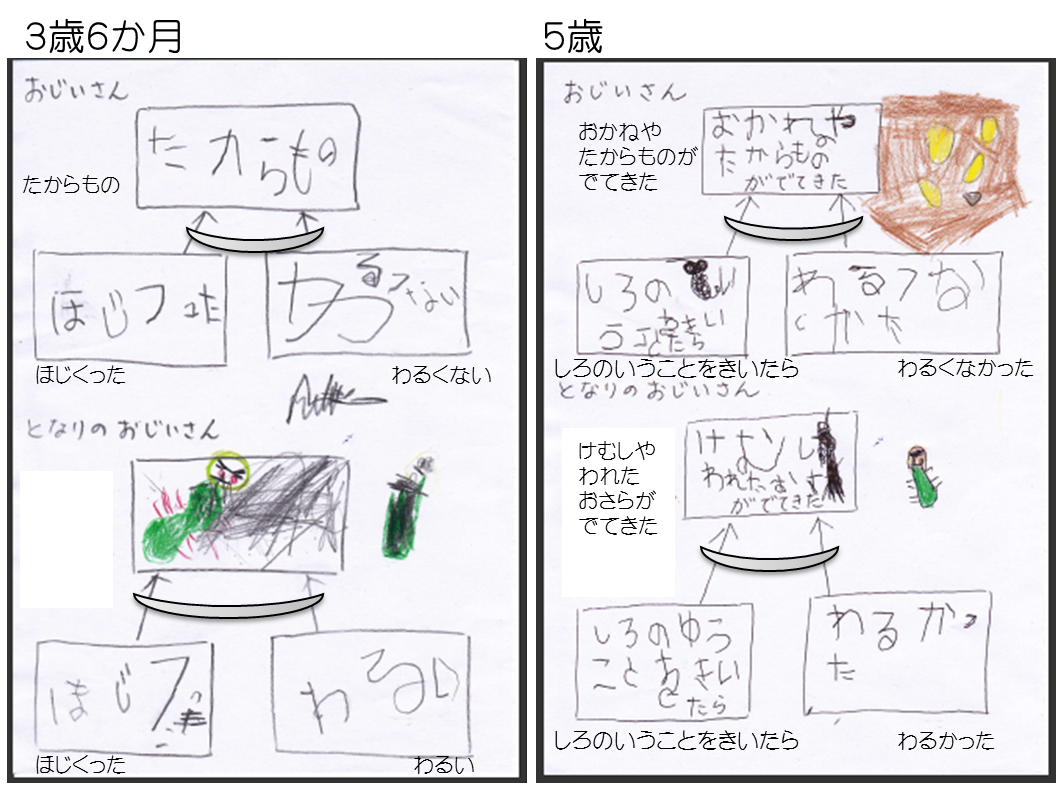 3歳6か月
おじいさん
たからもの
たからもの
ほじくった
わるくない
ほじくった
わるくない
となりの おじいさん
ほじくった
わるい
ほじくった
わるい
5歳
おじいさん
おかねや
たからものが
でてきた
おかねや
たからもの
がでてきた
しろの い
うことをきい
たら
わるくな
かた
しろのいうことをきいたら
わるくなかった
となりの おじいさん
けむしや
われた
おさらが
でてきた
けむし
われたおさ
がでてきた
しろのゆう
ことをきい
たら
わるかっ
た
しろのいうことをきいたら
わるかった